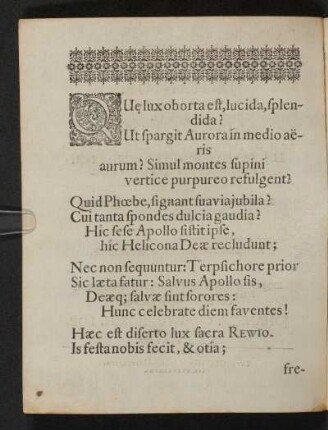 QUę lux oborta est, lucida, splen-
dida?
Ut spargit Aurora in medio aë-
ris
aurum? Simul montes supini
vertice purpureo refulgent?
Quid Phœbe, signant suavia jubila?
Cui tanta spondes dulcia gaudia?
Hic sese Apollo sistit ipse,
hîc Helicona Deæ recludunt;
Nec non sequuntur: Terpsichore prior
Sic læta fatur: Salvus Apollo sis,
Deæq; salvæ sint sorores:
Hunc celebrate diem faventes!
Hæc est diserto lux sacra REWIO.
Is festa nobis fecit, & otia;
fre-